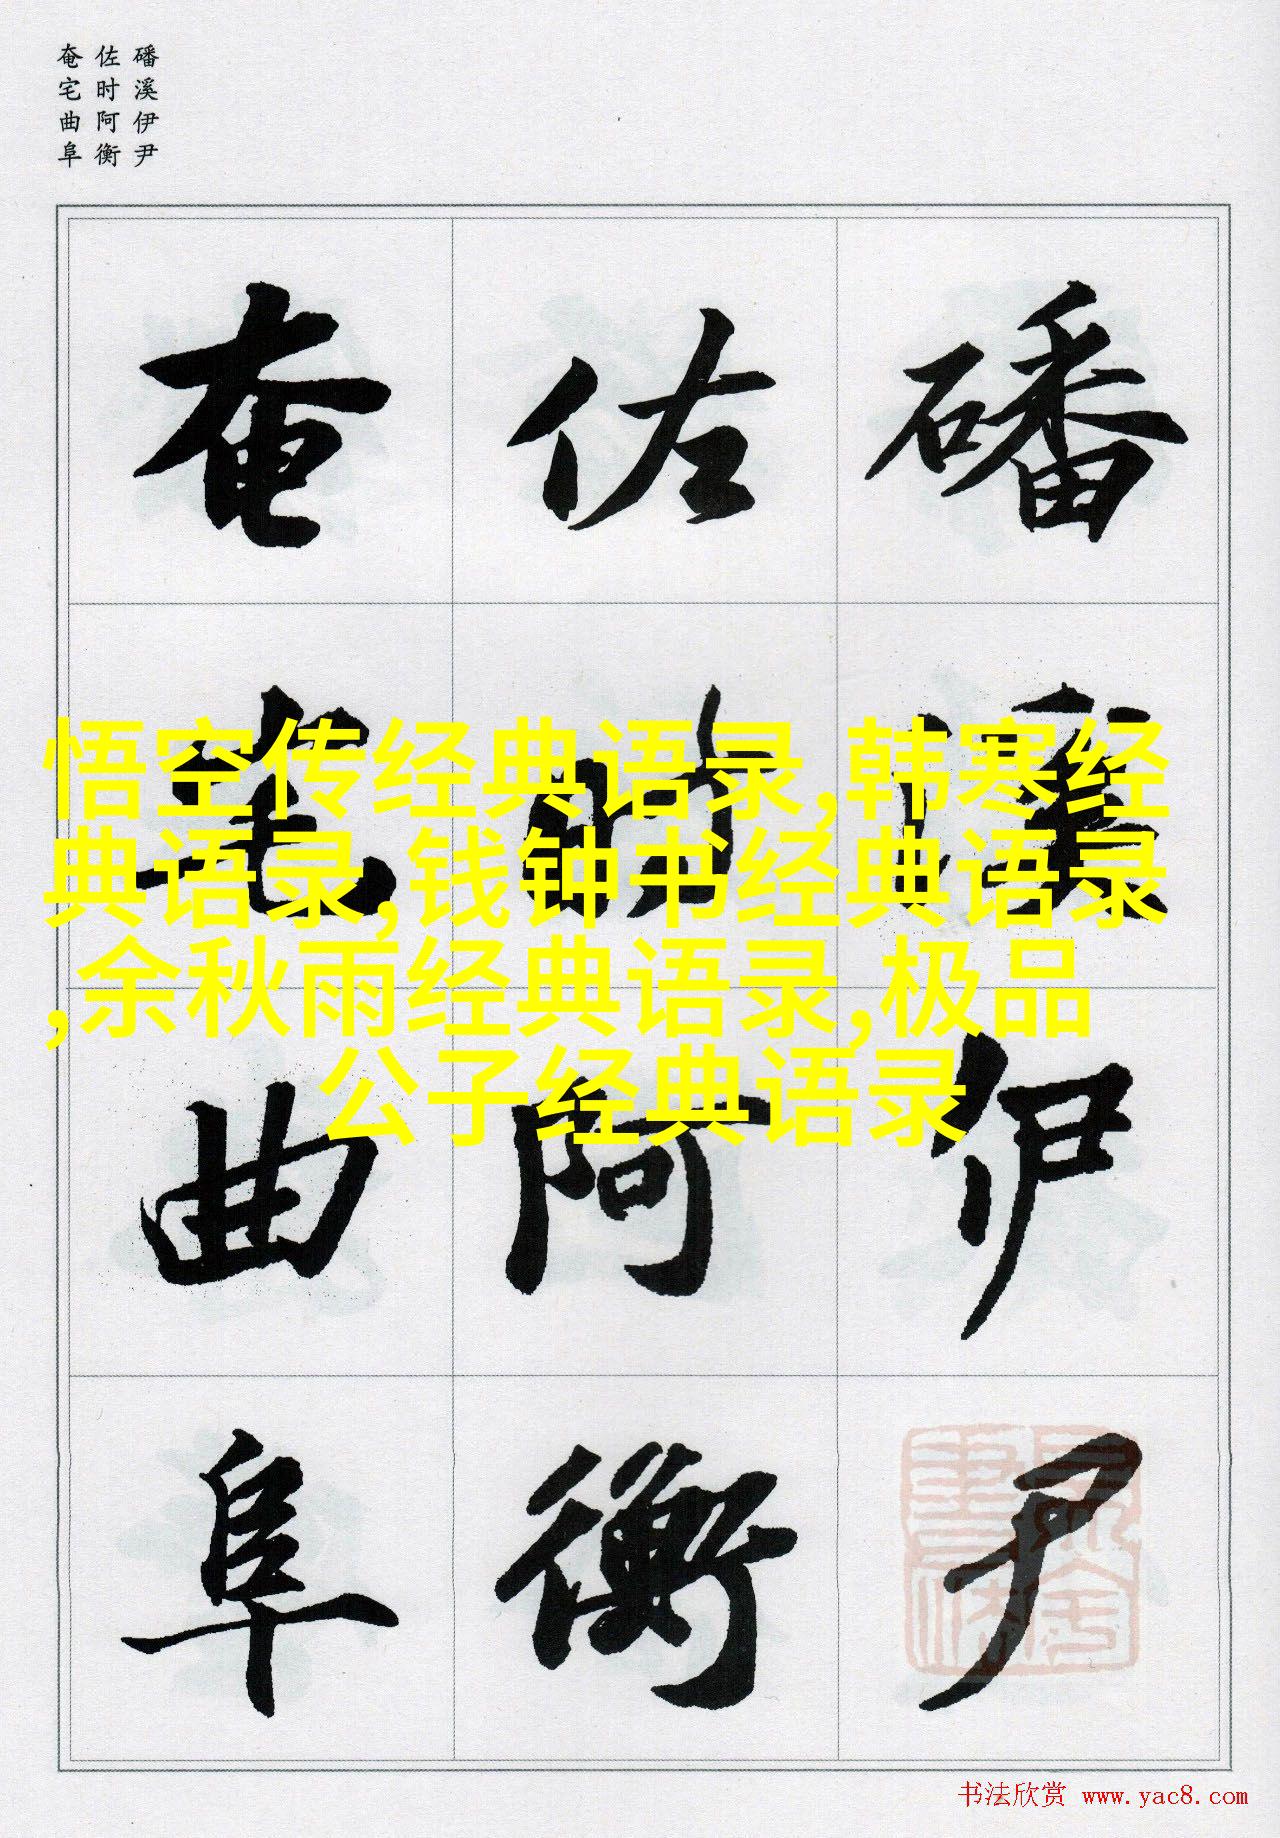 磻溪伊尹
佐时阿衡
奄宅曲阜
磻溪伊尹
佐时阿衡
奄宅曲阜
悟空传经典语录,韩寒经
典语录,钱钟书经典语录
,余秋雨经典语录,极品
公子经典语录
书法欣赏 www.yac8.com